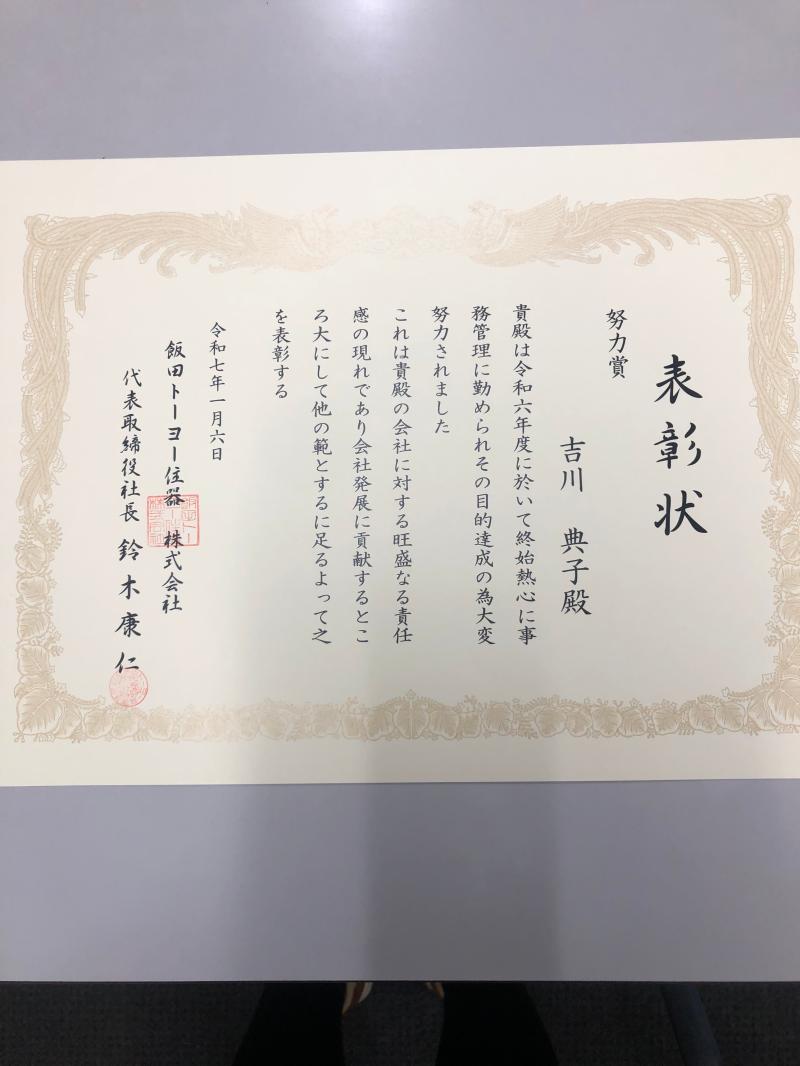 表彰状
努力賞
吉川 典子殿
貴殿は令和六年度に於いて終始熱心に事
務管理に勤められその目的達成の為大変
努力されました
これは貴殿の会社に対する旺盛なる責任
感の現れであり会社発展に貢献するとこ
ろ大にして他の範とするに足るよって之
を表彰する
令和七年一月六日
飯田トーヨー住器 株式会社
代表取締役社長 鈴木康仁